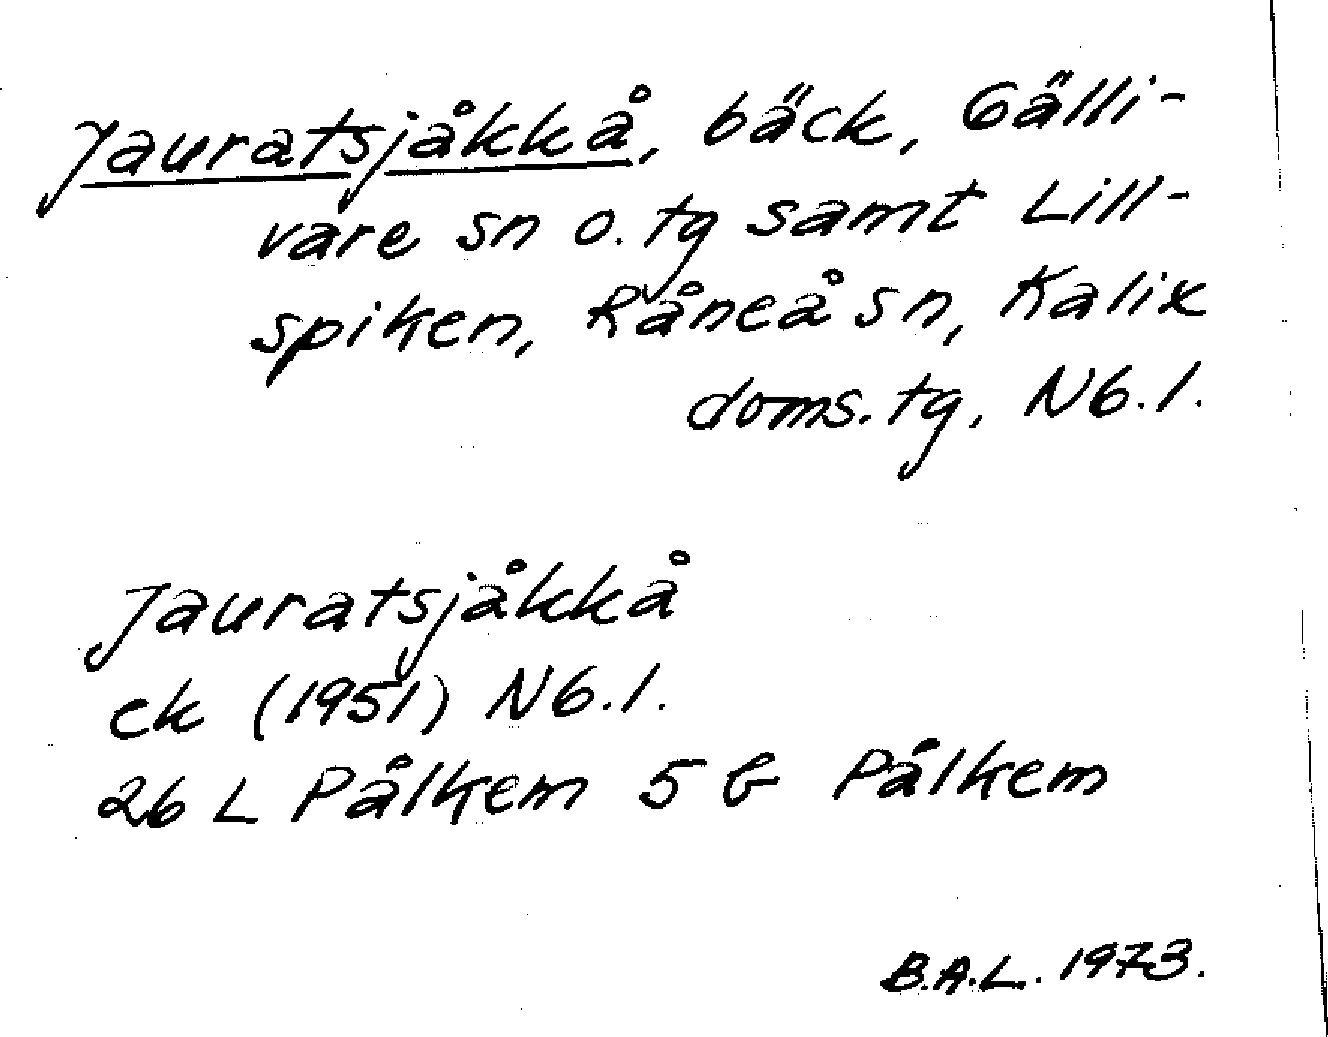 Jauratsjåkkå, bäck, Gälli-
vare sn o. tg samt Lill-
spiken, Råneå sn, Kalix
doms. tg, Nb.l.
Jauratsjåkkå
ek (1951) Nb.l.
26 L Pålkem 5 b Pålkem
B.A.L. 1973.